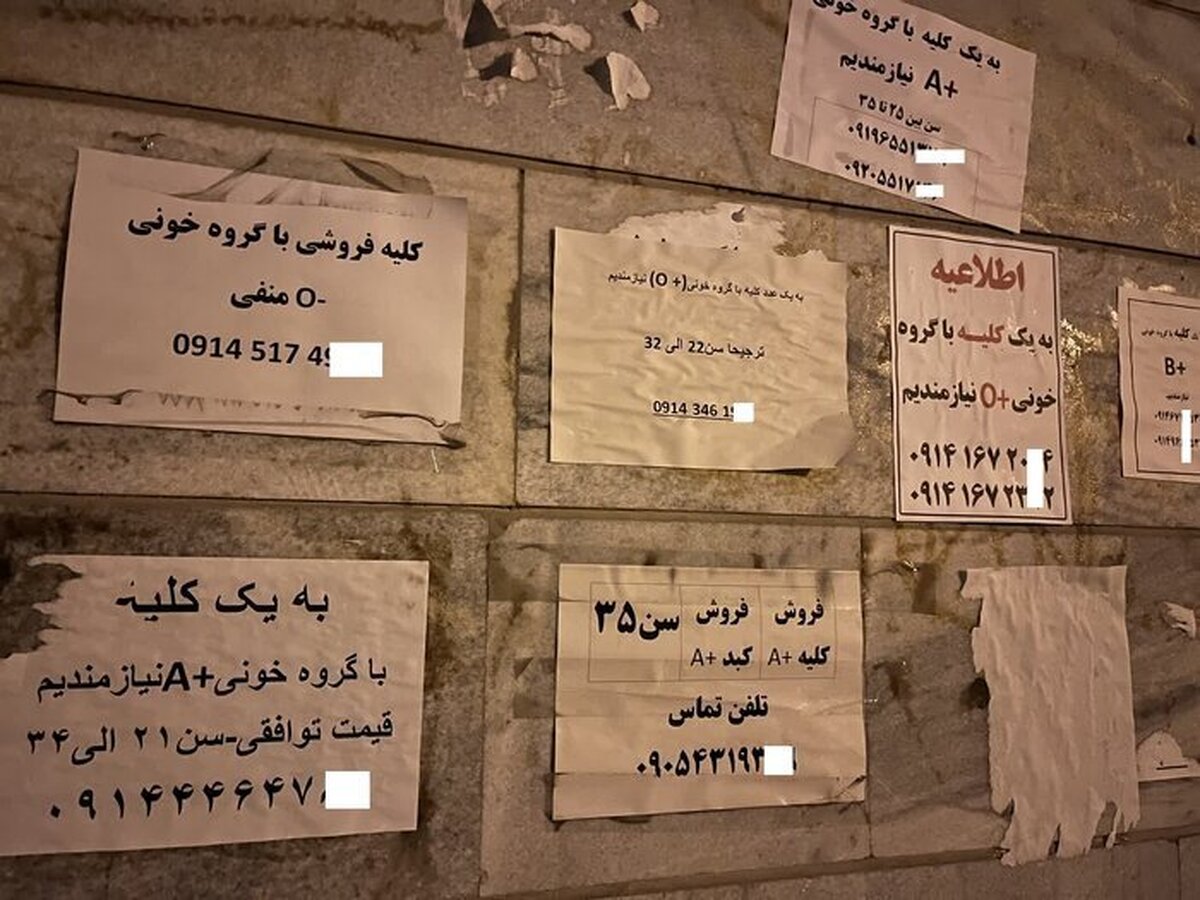 به یک کلیه با گروه خونی
A+ نیازمندیم
سن بین ۲۵ تا ۳۵
۰۹۱۹۶۵۵۱۳
۰۹۲۰۵۵۱۷
کلیه فروشی با گروه خونی
O- منفی
0914 517 49
به یک عدد کلیه با گروه خونی(O +) نیازمندیم
ترجیحا سن22 الی 32
0914 346 19
اطلاعیه
به یک کلیه با گروه
خونی +O نیازمندیم
۰۹۱۴ ۱۶۷ ۲۰ ۴
۰۹۱۴ ۱۶۷ ۲۳ ۲
کلیه با گروه خونی
B+
نیازمندیم
۰۹۱۴۶۷ ۱۳
۰۹۱۴۹۶ ۵۳
به یک کلیه
با گروه خونی+Aنیازمندیم
قیمت توافقی-سن۲۱ الی۳۴
۰۹۱۴۴۴۶۴۷
فروش کلیه +A
فروش کبد +A
سن۳۵
تلفن تماس
۰۹۰۵۴۳۱۹۳